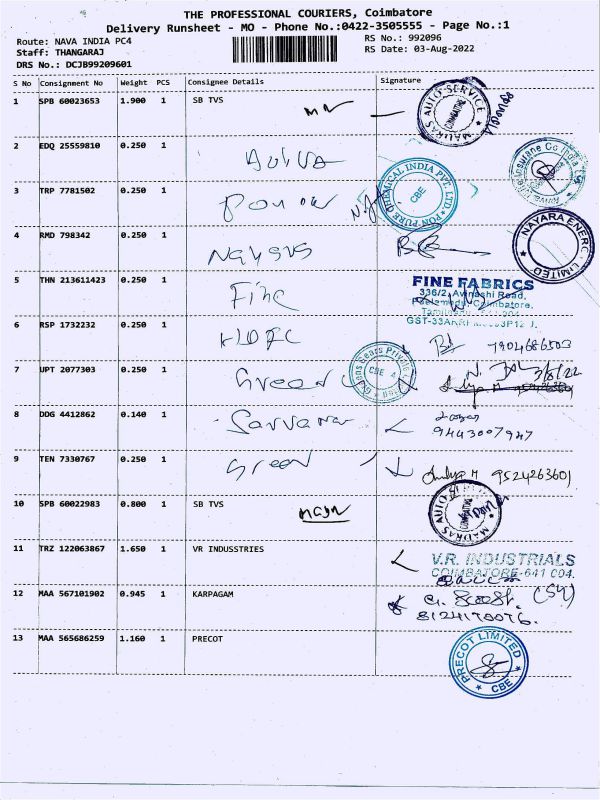 THE PROFESSIONAL COURIERS, Coimbatore
Delivery Runsheet - MO - Phone No.:0422-3505555 - Page No.:1
Route: NAVA INDIA PC4
Staff: THANGARAJ
DRS No.: DCJB99209601
RS No.: 992096
RS Date: 03-Aug-2022
S No Consignment No Weight PCS Consignee Details Signature
1 SPB 60023653 1.900 1 SB TVS
MADRAS AUTO SERVICE COIMBATORE
2 EDQ 25559810 0.250 1 Aviva
3 TRP 7781502 0.250 1 Pon
PON PURE CHEMICAL INDIA PVT. LTD CBE
4 RMD 798342 0.250 1
NAYARA ENERGY LIMITED
5 THN 213611423 0.250 1 Fine
FINE FABRICS
336/2, Avinashi Road,
Coimbatore.
6 RSP 1732232 0.250 1 HDFC 7904686503
7 UPT 2077303 0.250 1 Green 3/8/22
CBE 4
8 DDG 4412862 0.140 1
9443007947
9 TEN 7330767 0.250 1 Green 9524263601
10 SPB 60022983 0.800 1 SB TVS main
MADRAS AUTO
11 TRZ 122063867 1.650 1 VR INDUSSTRIES
V.R. INDUSTRIALS
COIMBATORE-641 004.
12 MAA 567101902 0.945 1 KARPAGAM
8124170076.
13 MAA 565686259 1.160 1 PRECOT
PRECOT LIMITED CBE